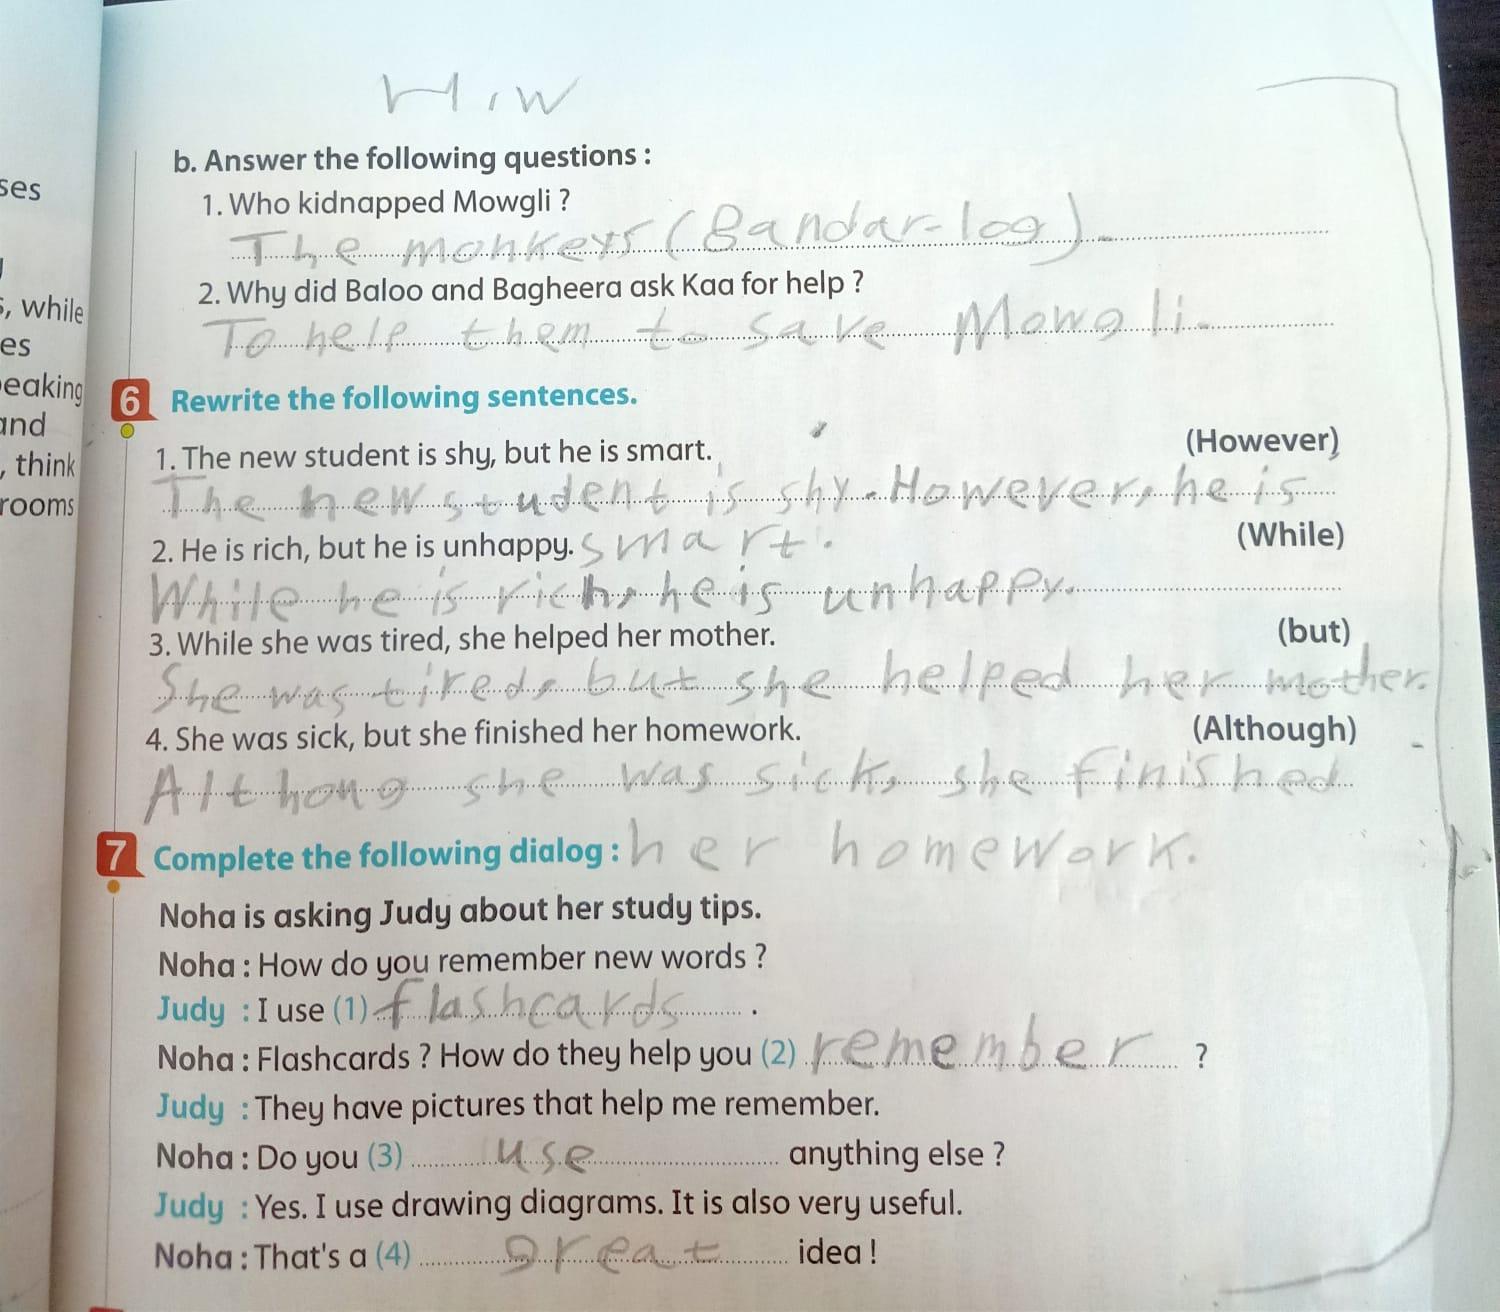 H.w
b. Answer the following questions :
ses
1. Who kidnapped Mowgli ?
The monkeys (Bandar-log).
2. Why did Baloo and Bagheera ask Kaa for help ?
s, while
To help them to save Mowgli.
es
eaking
6 Rewrite the following sentences.
and
1. The new student is shy, but he is smart. (However)
, think
The new student is shy. However, he is
rooms
2. He is rich, but he is unhappy. smart. (While)
While he is rich, he is unhappy.
3. While she was tired, she helped her mother. (but)
She was tired, but she helped her mother.
4. She was sick, but she finished her homework. (Although)
Althong she was sick, she finished
7 Complete the following dialog : her homework.
Noha is asking Judy about her study tips.
Noha : How do you remember new words ?
Judy : I use (1) flashcards .
Noha : Flashcards ? How do they help you (2) remember ?
Judy : They have pictures that help me remember.
Noha : Do you (3) use anything else ?
Judy : Yes. I use drawing diagrams. It is also very useful.
Noha : That's a (4) great idea !